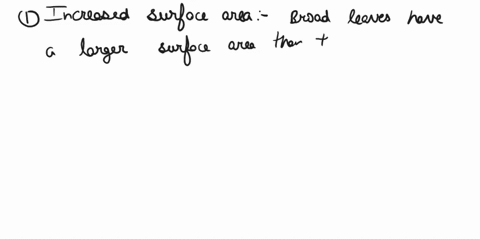 ① Increased surface area:- Broad leaves have
a larger surface area than t